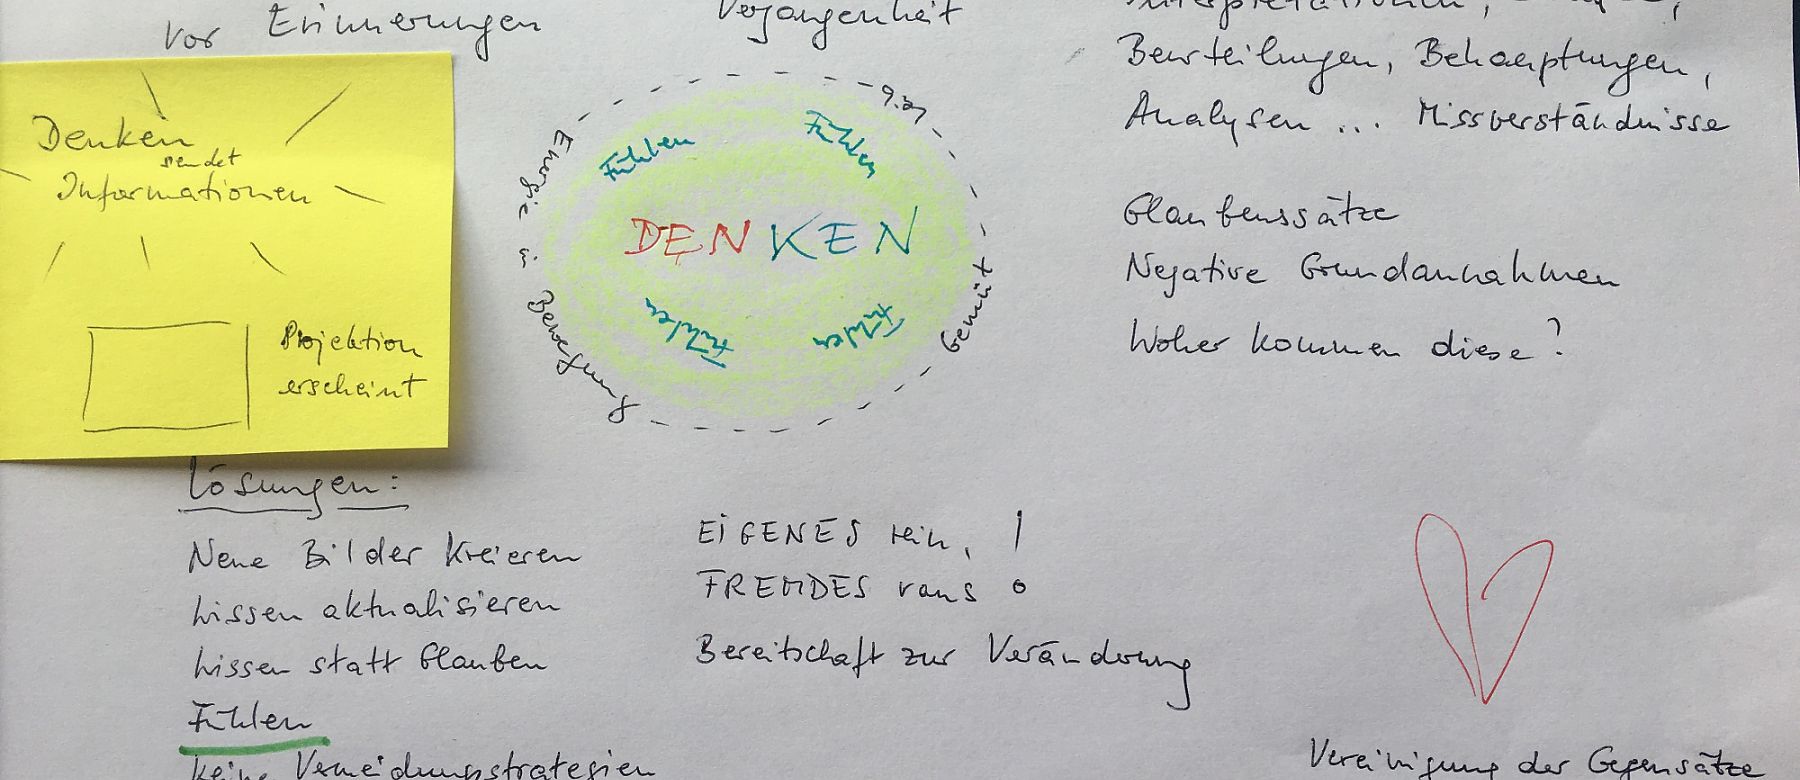 vor Erinnerungen
Vergangenheit
Interpretationen,
Beurteilungen, Behauptungen,
Analysen ... Missverständnisse
Denken
sendet
Informationen
Projektion
erscheint
Energie in Bewegung
Gemüt
Fühlen Fühlen
DENKEN
Fühlen Fühlen
Glaubenssätze
Negative Grundannahmen
Woher kommen diese?
Lösungen:
Neue Bilder kreieren
Wissen aktualisieren
Wissen statt Glauben
Fühlen
keine Vermeidungsstrategien
EIGENES rein, !
FREMDES raus
Bereitschaft zur Veränderung
Vereinigung der Gegensätze